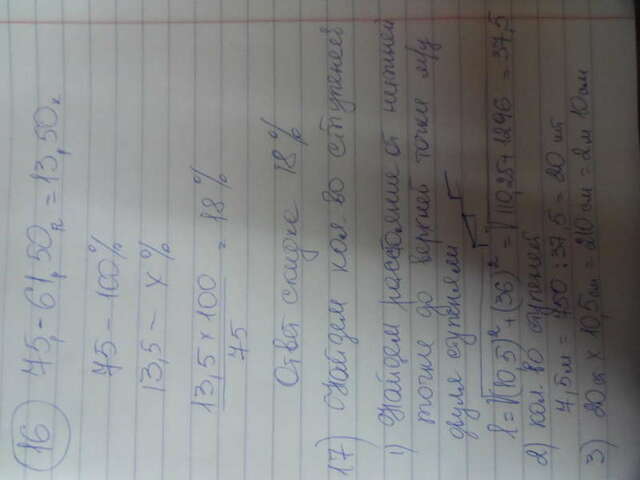 16 75,- 61,50 = 13,50
75 - 100%
13,5 - x%
13,5 x 100
75
= 18%
Ответ скидка 18%
17) Найдем кол. во ступеней
1) Найдем расстояние от нижней
точки до верхней точки м/у
двумя ступенями
l = √(10,5)² + (36)² = √110,25 + 1296 = 37,5
2) кол. во ступеней
7,5 м = 750 : 37,5 = 20 шт
3) 20 x 10,5 см = 210 см = 2 м 10 см